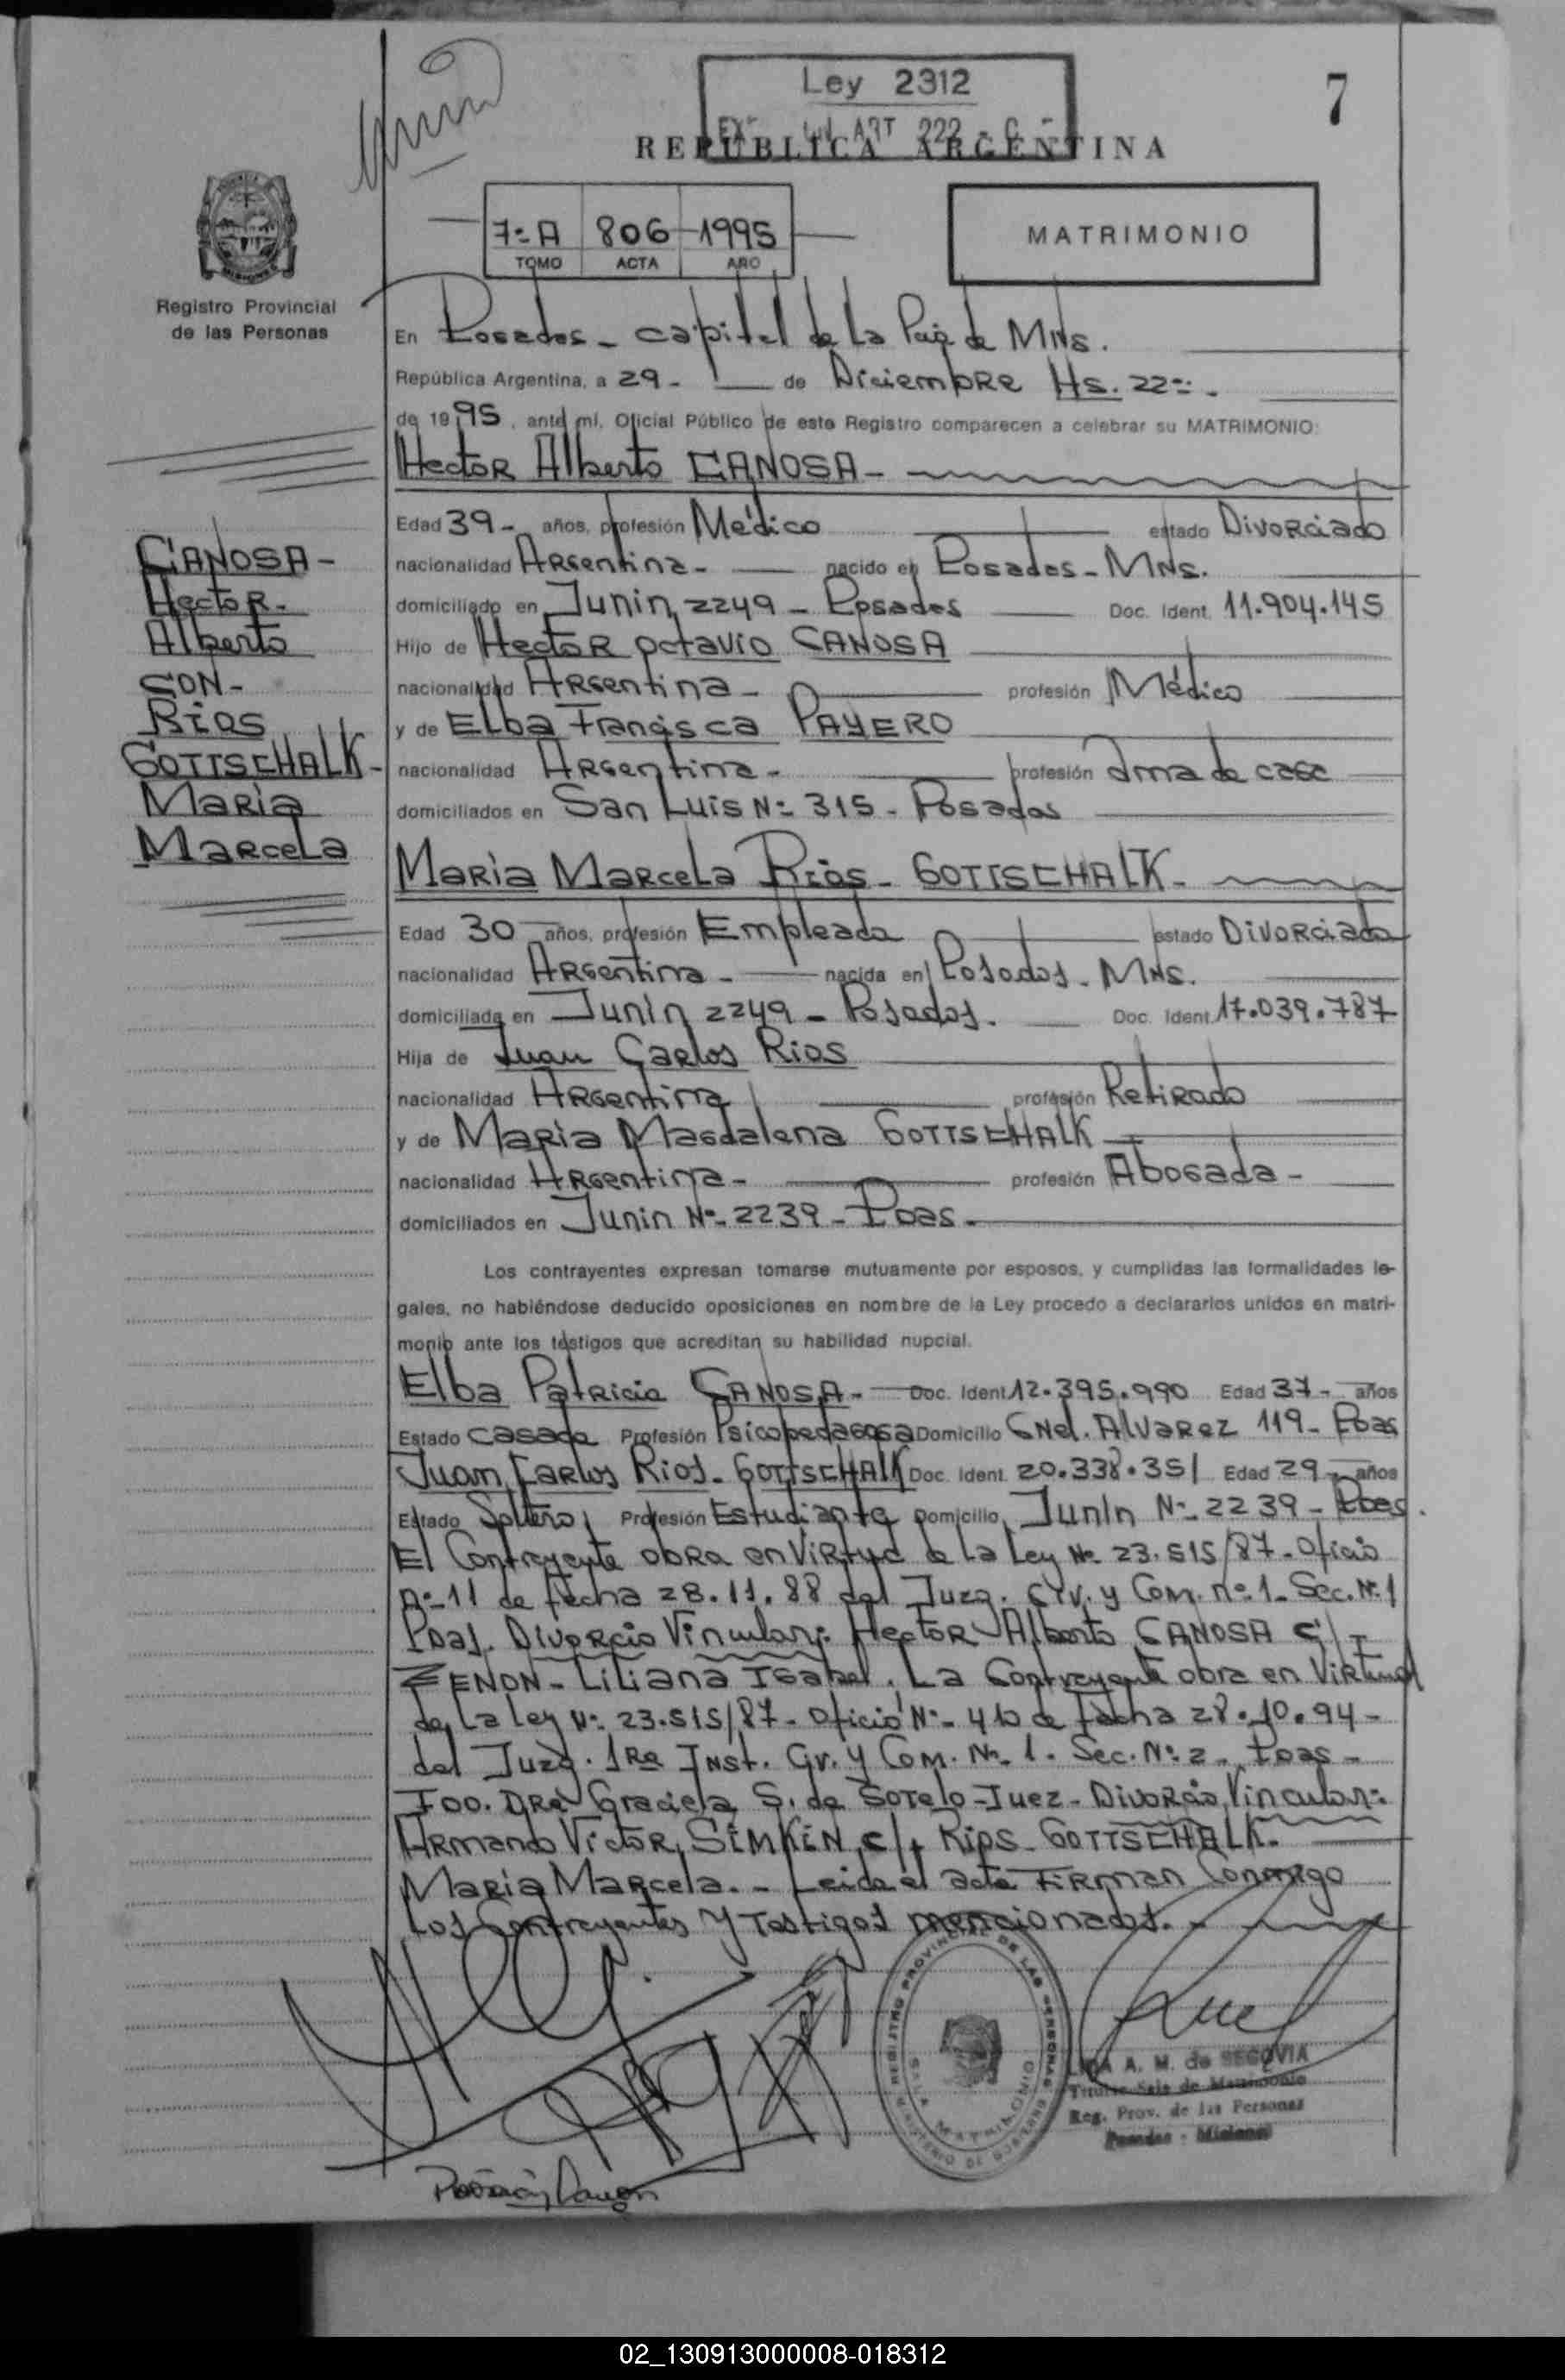 Ley 2312
7
ART 222
REPUBLICA ARGENTINA
7=A 806 1995
TOMO ACTA AÑO
MATRIMONIO
Registro Provincial
de las Personas
En Posadas - capital de La de MNS.
República Argentina, a 29 - de Diciembre Hs. 22
de 1995, ante mí, Oficial Público de este Registro comparecen a celebrar su MATRIMONIO:
Hector Alberto CANOSA -
Edad 39 - años, profesión Médico estado Divorciado
nacionalidad Argentina - nacido en Posadas - MNS.
domiciliado en Junin 2249 - Posadas Doc. Ident. 11.904.145
Hijo de Hector Octavio CANOSA
nacionalidad Argentina - profesión Médico
y de Elba Francisca PAYERO
nacionalidad Argentina - profesión Ama de casa
domiciliados en San Luis Nº 315 - Posadas
CANOSA -
Hector -
Alberto
CON -
Rios
GOTTSCHALK -
Maria
Marcela
Maria Marcela Rios - GOTTSCHALK -
Edad 30 años, profesión Empleada estado Divorciada
nacionalidad Argentina - nacida en Posadas - MNS.
domiciliada en Junin 2249 - Posadas. Doc. Ident. 17.039.787
Hija de Juan Carlos Rios
nacionalidad Argentina profesión Retirado
y de Maria Magdalena GOTTSCHALK
nacionalidad Argentina - profesión Abogada -
domiciliados en Junin Nº 2239 - Pdas -
Los contrayentes expresan tomarse mutuamente por esposos, y cumplidas las formalidades le-
gales, no habiéndose deducido oposiciones en nombre de la Ley procedo a declararlos unidos en matri-
monio ante los testigos que acreditan su habilidad nupcial.
Elba Patricia CANOSA - Doc. Ident. 12.395.990 Edad 37 - años
Estado casada Profesión Psicopedagoga Domicilio Cnel. Alvarez 119 - Pdas
Juan Carlos Rios - GOTTSCHALK Doc. Ident. 20.338.351 Edad 29 - años
Estado Soltero Profesión Estudiante Domicilio Junin Nº 2239 - Pdas.
El Contrayente obra en virtud de la Ley Nº 23.515/87 - Oficio
nº 11 de fecha 28.11.88 del Juzg. Civ. y Com. nº 1 - Sec. Nº 1
Pdas. Divorcio Vincular: Hector Alberto CANOSA c/
ZENON - Liliana Isabel. La Contrayente obra en virtud
de la ley Nº 23.515/87 - Oficio Nº de fecha 28.10.94 -
del Juzg. 1Ra Inst. Civ. y Com. Nº 1 - Sec. Nº 2 - Pdas -
Fdo. DRa Graciela S. de Sotelo - Juez - Divorcio Vincular:
Armando Victor SIMKIN c/ Rios - GOTTSCHALK -
Maria Marcela. - Leida el acta Firman Conmigo
Los Contrayentes y Testigos mencionados. -
REGISTRO PROVINCIAL DE LAS PERSONAS
MINISTERIO DE GOBIERNO
SALA MATRIMONIO
A. M. de SEGOVIA
Titular Sala de Matrimonio
Reg. Prov. de las Personas
Posadas - Misiones
02_130913000008-018312